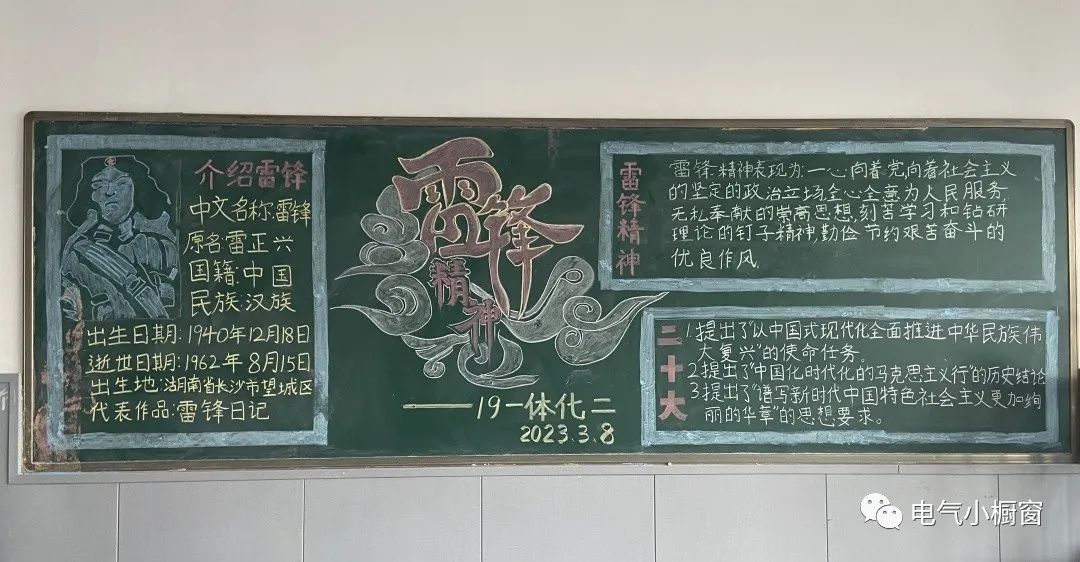 介绍雷锋
中文名称:雷锋
原名:雷正兴
国籍:中国
民族:汉族
出生日期:1940年12月18日
逝世日期:1962年8月15日
出生地:湖南省长沙市望城区
代表作品:雷锋日记
雷锋
精神
——19一体化二
2023.3.8
雷锋精神
雷锋精神表现为:一心向着党向着社会主义
的坚定的政治立场全心全意为人民服务,
无私奉献的崇高思想,刻苦学习和钻研
理论的钉子精神,勤俭节约艰苦奋斗的
优良作风.
二十大
1.提出了“从中国式现代化全面推进中华民族伟
大复兴”的使命任务。
2.提出了“中国化时代化的马克思主义行”的历史结论
3.提出了“谱写新时代中国特色社会主义更加绚
丽的华章”的思想要求。
电气小橱窗